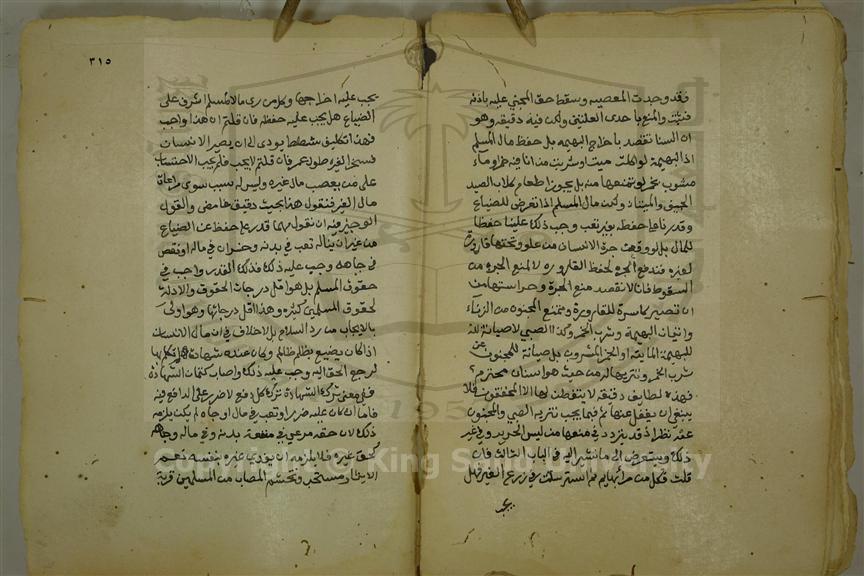 فقد وجدت المعصيه وسقط حق المجني عليه باذنه
فتثبت والمنع باحدى العلتين ولكن فيه دقيقه وهو
ان لسنا نقصد باخراج البهيمة بل حفظ مال المسلم
اذ البهيمة لو اكلت ميتة او شربت من اناء فيه خمر او ماء
مشوب بخمر لم نمنعها منه بل يجوز اطعام كلاب الصيد
الجيف والميتات ولكن مال المسلم اذا تعرض للضياع
وقدرنا على حفظه بغير تعب وجب ذلك علينا حفظا
للمال بل لو وقعت جرة الانسان من علو وتحتها قارورة
لغيره فندفع الجره لحفظ القارورة لا لمنع الجره من
السقوط فانا لا نقصد منع الجرة وحراستها من
ان تصير كاسرة للقارورة ونمنع المجنون من الزناء
واتيان البهيمة وشرب الخمر وكذا الصبي لا صيانة
للبهيمة الماتيه او الخمر المشروب بل صيانة للمجنون عن
شرب الخمر وتنزيها له من حيث هو انسان محترم
فهذه لطايف دقيقة لا يتفطن لها الا المحققون فلا
ينبغي ان يغفل عنها ثم فيما يجب تنزيه الصبي والمجنون
عنه نظر اذ قد يتردد في منعهما من لبس الحرير وفي غير
ذلك وسنتعرض الى ما نشير اليه في الباب الثالث فان
قلت فكل من راى بهايم قد استرسلت في زرع الغير فهل
يجب
٣١٥
يجب عليه اخراجها وكل من رى مالا لمسلم اشرف على
الضياع هل يجب عليه حفظه فان قلتم ان هذا واجب
فهذا تكليف شطط يودي الى ان يصير الانسان
مسخرا لغيره طول عمره فان قلتم لا يجب فلم يجب الاحتساب
على من يغصب مال غيره وليس له سبب سوى مراعاة
مال الغير فنقول هذا بحيث دقيق غامض والقول
الوجيز فيه ان نقول مهما قدر على حفظه عن الضياع
من غير ان يناله تعب في بدنه وخسران في ماله او نقص
في جاهه وجب عليه ذلك فذلك القدر واجب في
حقوق المسلم بل هو اقل درجات الحقوق والادلة
لحقوق المسلمين كثيره وهذا اقل درجاتها وهو اولى
بالايجاب من رد السلام بل لا خلاف في ان مال الانسان
اذا كان يضيع بظلم ظالم وكان عنده شهادة لو تكلم بها
لرجع الحق اليه وجب عليه ذلك وعصى بكتمان الشهادة
ففي معنى ترك الشهادة ترك كل دفع لا ضرر على الدافع فيه
فاما ان كان عليه ضرر او تعب في مال او جاه لم يكن يلزمه
ذلك لان حقه مرعي في منفعة بدنه وفي ماله وجاهه
كحق غيره فلا يلزمه ان يفدي غيره بنفسه نعم
الايثار مستحب وتجشم المصاب من المسلمين قربة
Copyright © King Saud University
1957